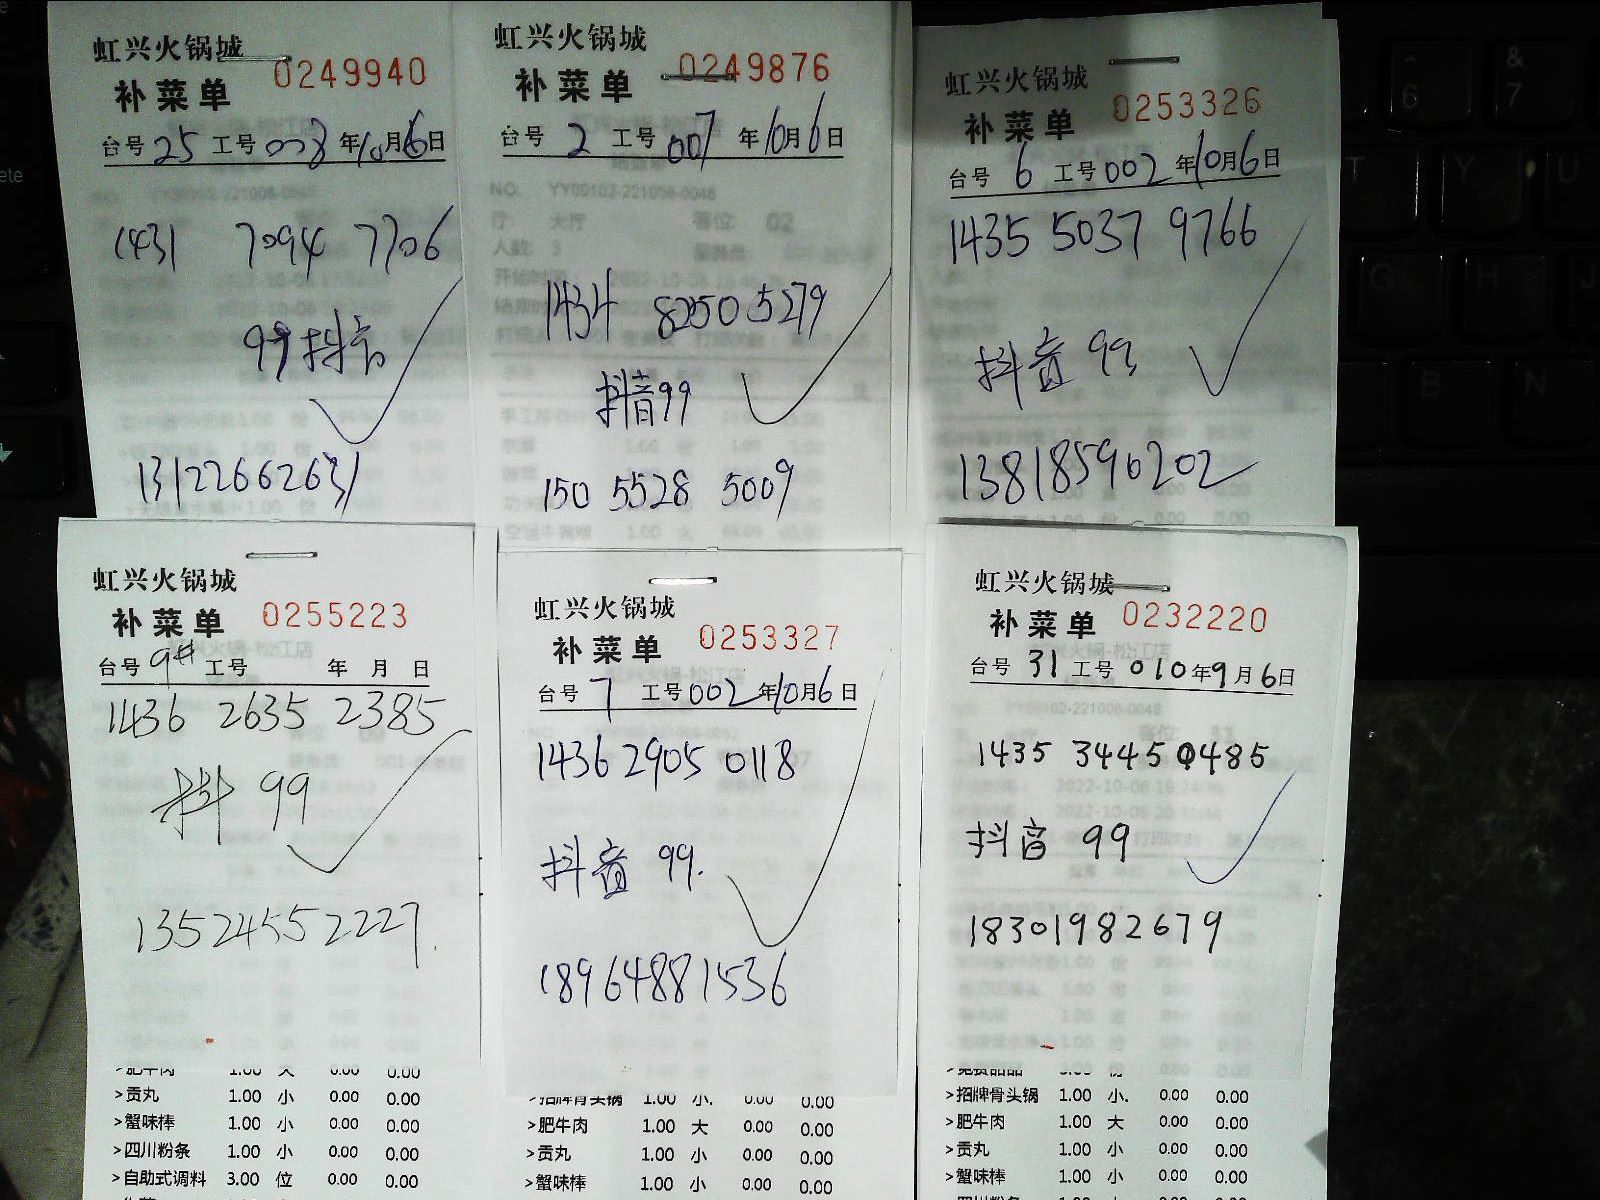 虹兴火锅城
补菜单 0249940
台号 25 工号 008 年10月6日
1431 7094 7706
99抖音
13122662631
虹兴火锅城
补菜单 0249876
台号 2 工号 007 年10月6日
NO. YY00102-221006-0046
厅: 大厅 客位: 02
人数: 3
1434 8250 5279
抖音99
150 5528 5009
虹兴火锅城
补菜单 0253326
台号 6 工号 002 年10月6日
1435 5037 9766
抖音 99
13818596202
虹兴火锅城
补菜单 0255223
台号 9# 工号 年 月 日
1436 2635 2385
抖 99
13524552227.
虹兴火锅城
补菜单 0253327
台号 7 工号 002 年10月6日
1436 2905 0118
抖音 99.
18964881536
虹兴火锅城
补菜单 0232220
台号 31 工号 010 年9月6日
1435 3445 0485
抖音 99
18301982679
>肥牛肉 1.00 大 0.00 0.00
>贡丸 1.00 小 0.00 0.00
>蟹味棒 1.00 小 0.00 0.00
>四川粉条 1.00 小 0.00 0.00
>自助式调料 3.00 位 0.00 0.00
>招牌骨头锅 1.00 小. 0.00 0.00
>肥牛肉 1.00 大 0.00 0.00
>贡丸 1.00 小 0.00 0.00
>蟹味棒 1.00 小 0.00 0.00
>招牌骨头锅 1.00 小. 0.00 0.00
>肥牛肉 1.00 大 0.00 0.00
>贡丸 1.00 小 0.00 0.00
>蟹味棒 1.00 小 0.00 0.00